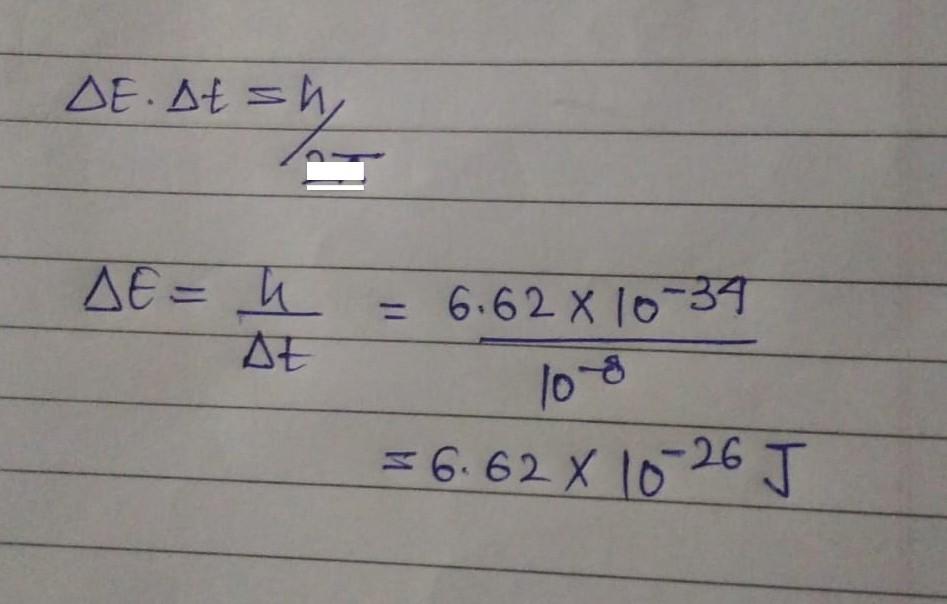 ΔE. Δt = h/
ΔE = h/Δt = 6.62 X 10^-34/10^-8
= 6.62 X 10^-26 J